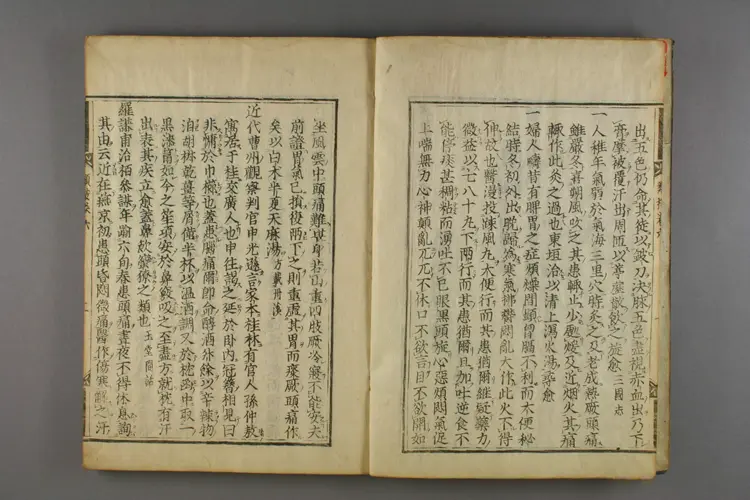 出五色仍命其徒以鈹刀決脉五色盡視赤血出乃下
膏摩被覆汗出周匝以葶藶散飲之旋愈 三國志
一人稚年氣弱於氣海三里穴時灸之及老成熱厥頭痛
雖嚴冬喜朝風吹之其患輒止少處煖及近烟火其痛
輒作此灸之過也東垣治以清上瀉火湯尋愈
一婦人疇昔有脾胃之症煩燥間顯胷膈不利而大便秘
結時冬初外出晚歸為寒氣拂鬱悶亂大作此火不得
伸故也醫漫投疎風丸大便行而其患猶爾継疑藥力
微益以七八十九下兩行而其患猶爾且加吐逆食不
能停痰甚稠粘而湧吐不已眼黑頭旋心惡煩悶氣促
上喘無力心神顛亂兀兀不休口不欲言目不欲開如
坐風雲中頭痛難身若山重四肢厥冷寢不能安夫
前證胃氣已損復兩下之則重虛其胃而痰厥頭痛作
矣以白木半夏天麻湯 方載丹溪
近代曹州觀察判官申光遜言家本桂林有官人孫仲敖
寓居于桂交廣人也申往謁之延於卧内冠簪相見曰
非慵於巾櫛也蓋患腦痛爾即命醇酒升餘以辛辣物
洎胡椒乾薑等屑僅半杯以温酒調又於枕函中取一
黑漆筩如今之笙項安於鼻竅吸之至盡方就枕有汗
出表其疾立愈蓋鼻飲蠻獠之類也 玉堂閒話
羅謙甫治柏參謀年踰六旬春患頭痛晝夜不得休息詢
其由云近在燕京初患頭昏悶微痛醫作傷寒解之汗